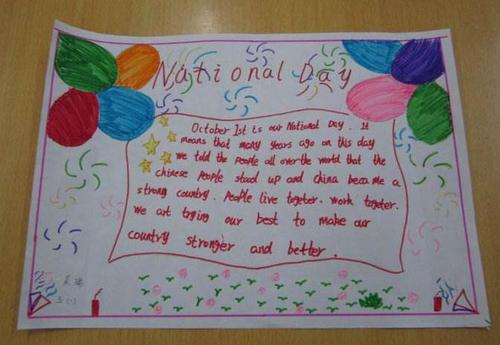 National Day
October 1st is our National Day. It
means that many years ago on this day
we told the people all over the world that the
chinese people stood up and China became a
strong country. People live togeter. work togeter.
We art trying our best to make our
country stronger and better.